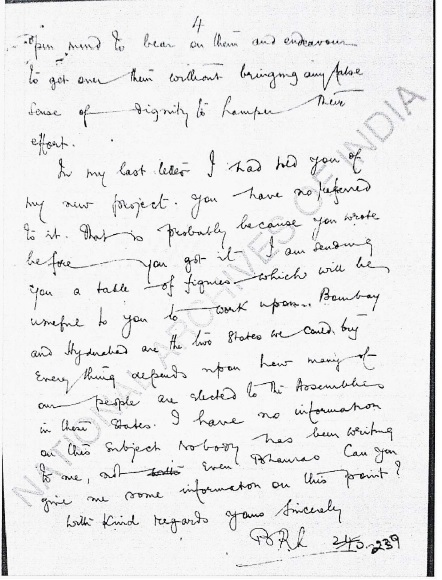 4
open mind to bear on them and endeavour
to get over them without bringing any false
sense of dignity to hamper their
effort.
In my last letter I had told you of
my new project. You have no referred
to it. That is probably because you wrote
before you got it I am sending
you a table of figures which will be
useful to you to work upon. Bombay
and Hyderabad are the two States we could try
Every thing depends upon how many of
our people are elected to the Assemblies
in these States. I have no information
on this subject Nobody has been writing
to me, not Even Bhaurao Can you
give me some information on this point?
With Kind regards yours Sincerely
239
NATIONAL ARCHIVES OF INDIA